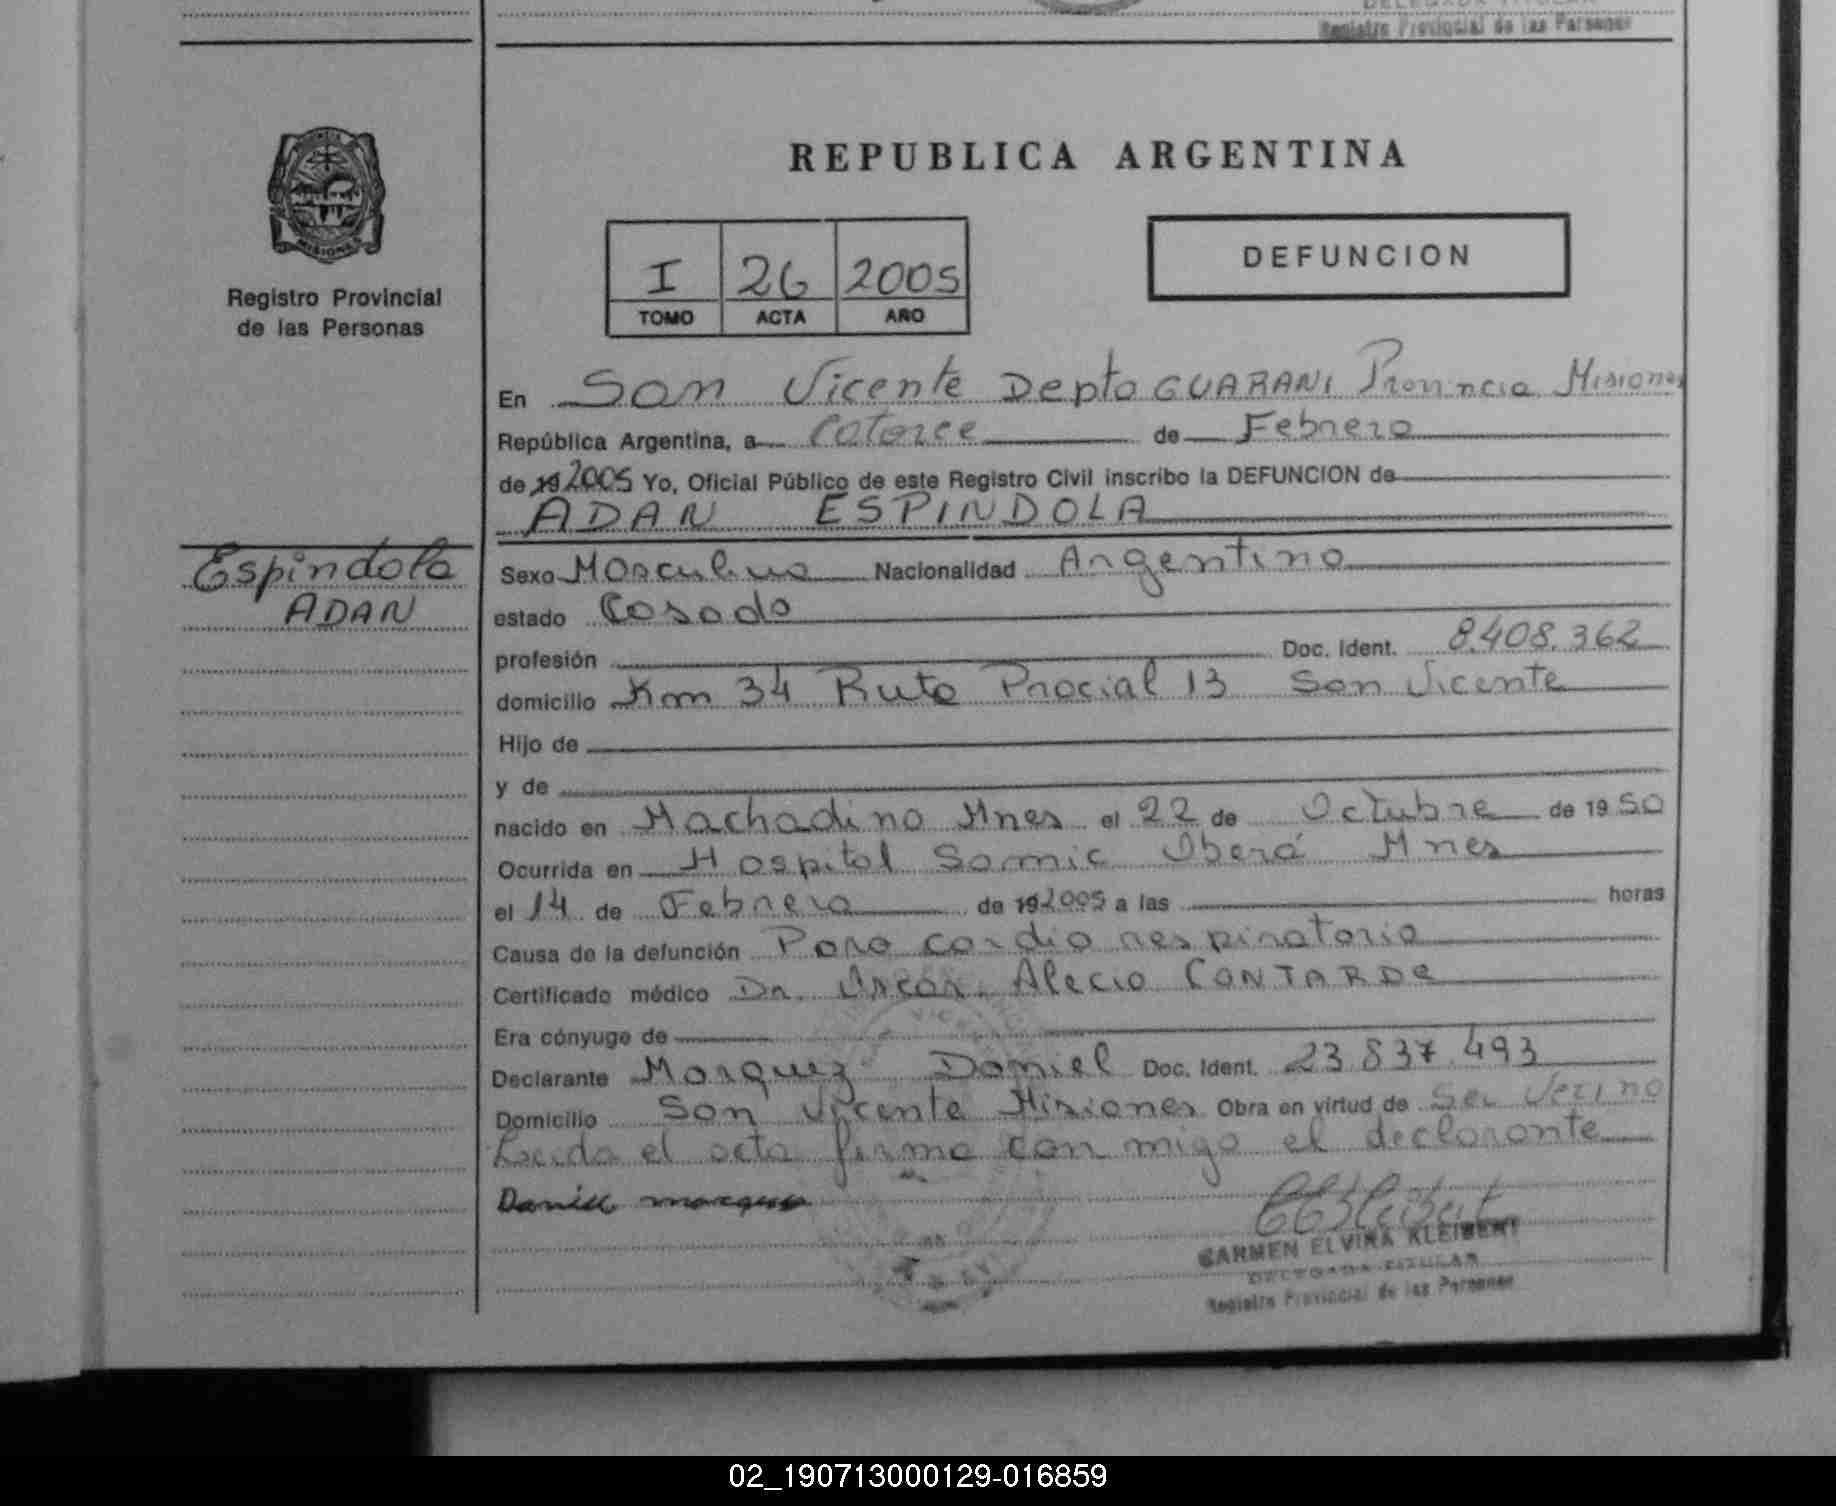 Registro Provincial de las Personas
REPUBLICA ARGENTINA
MISIONES
Registro Provincial
de las Personas
I 26 2005
TOMO ACTA AÑO
DEFUNCION
En San Vicente Depto GUARANI Provincia Misiones
República Argentina, a Catorce de Febrero
de 19 2005 Yo, Oficial Público de este Registro Civil inscribo la DEFUNCION de
ADAN ESPINDOLA
Espindola
ADAN
Sexo Masculino Nacionalidad Argentino
estado Casado
profesión Doc. Ident. 8.408.362
domicilio Km 34 Ruta Procial 13 San Vicente
Hijo de
y de
nacido en Machadino Mnes el 22 de Octubre de 1950
Ocurrida en Hospital Samic Oberá Mnes
el 14 de Febrero de 19 2005 a las horas
Causa de la defunción Paro cardio respiratorio
Certificado médico Dr. Oscar Alecio CONTARDE
Era cónyuge de
Declarante Marquez Daniel Doc. Ident. 23.837.493
Domicilio San Vicente Misiones Obra en virtud de Ser Vecino
Leida el acta firma con migo el declarante
Daniel marques
CARMEN ELVIRA KLEIBERT
DELEGADA TITULAR
Registro Provincial de las Personas
02_190713000129-016859